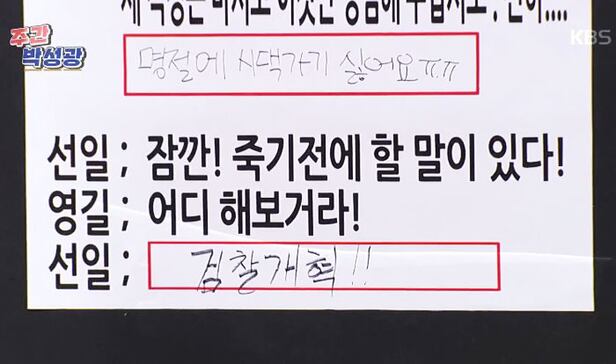 주간
박성광
KBS
명절에 시댁가기 싫어요ㅠㅠ
선일 ; 잠깐! 죽기전에 할 말이 있다!
영길 ; 어디 해보거라!
선일 ; 검찰개혁!!